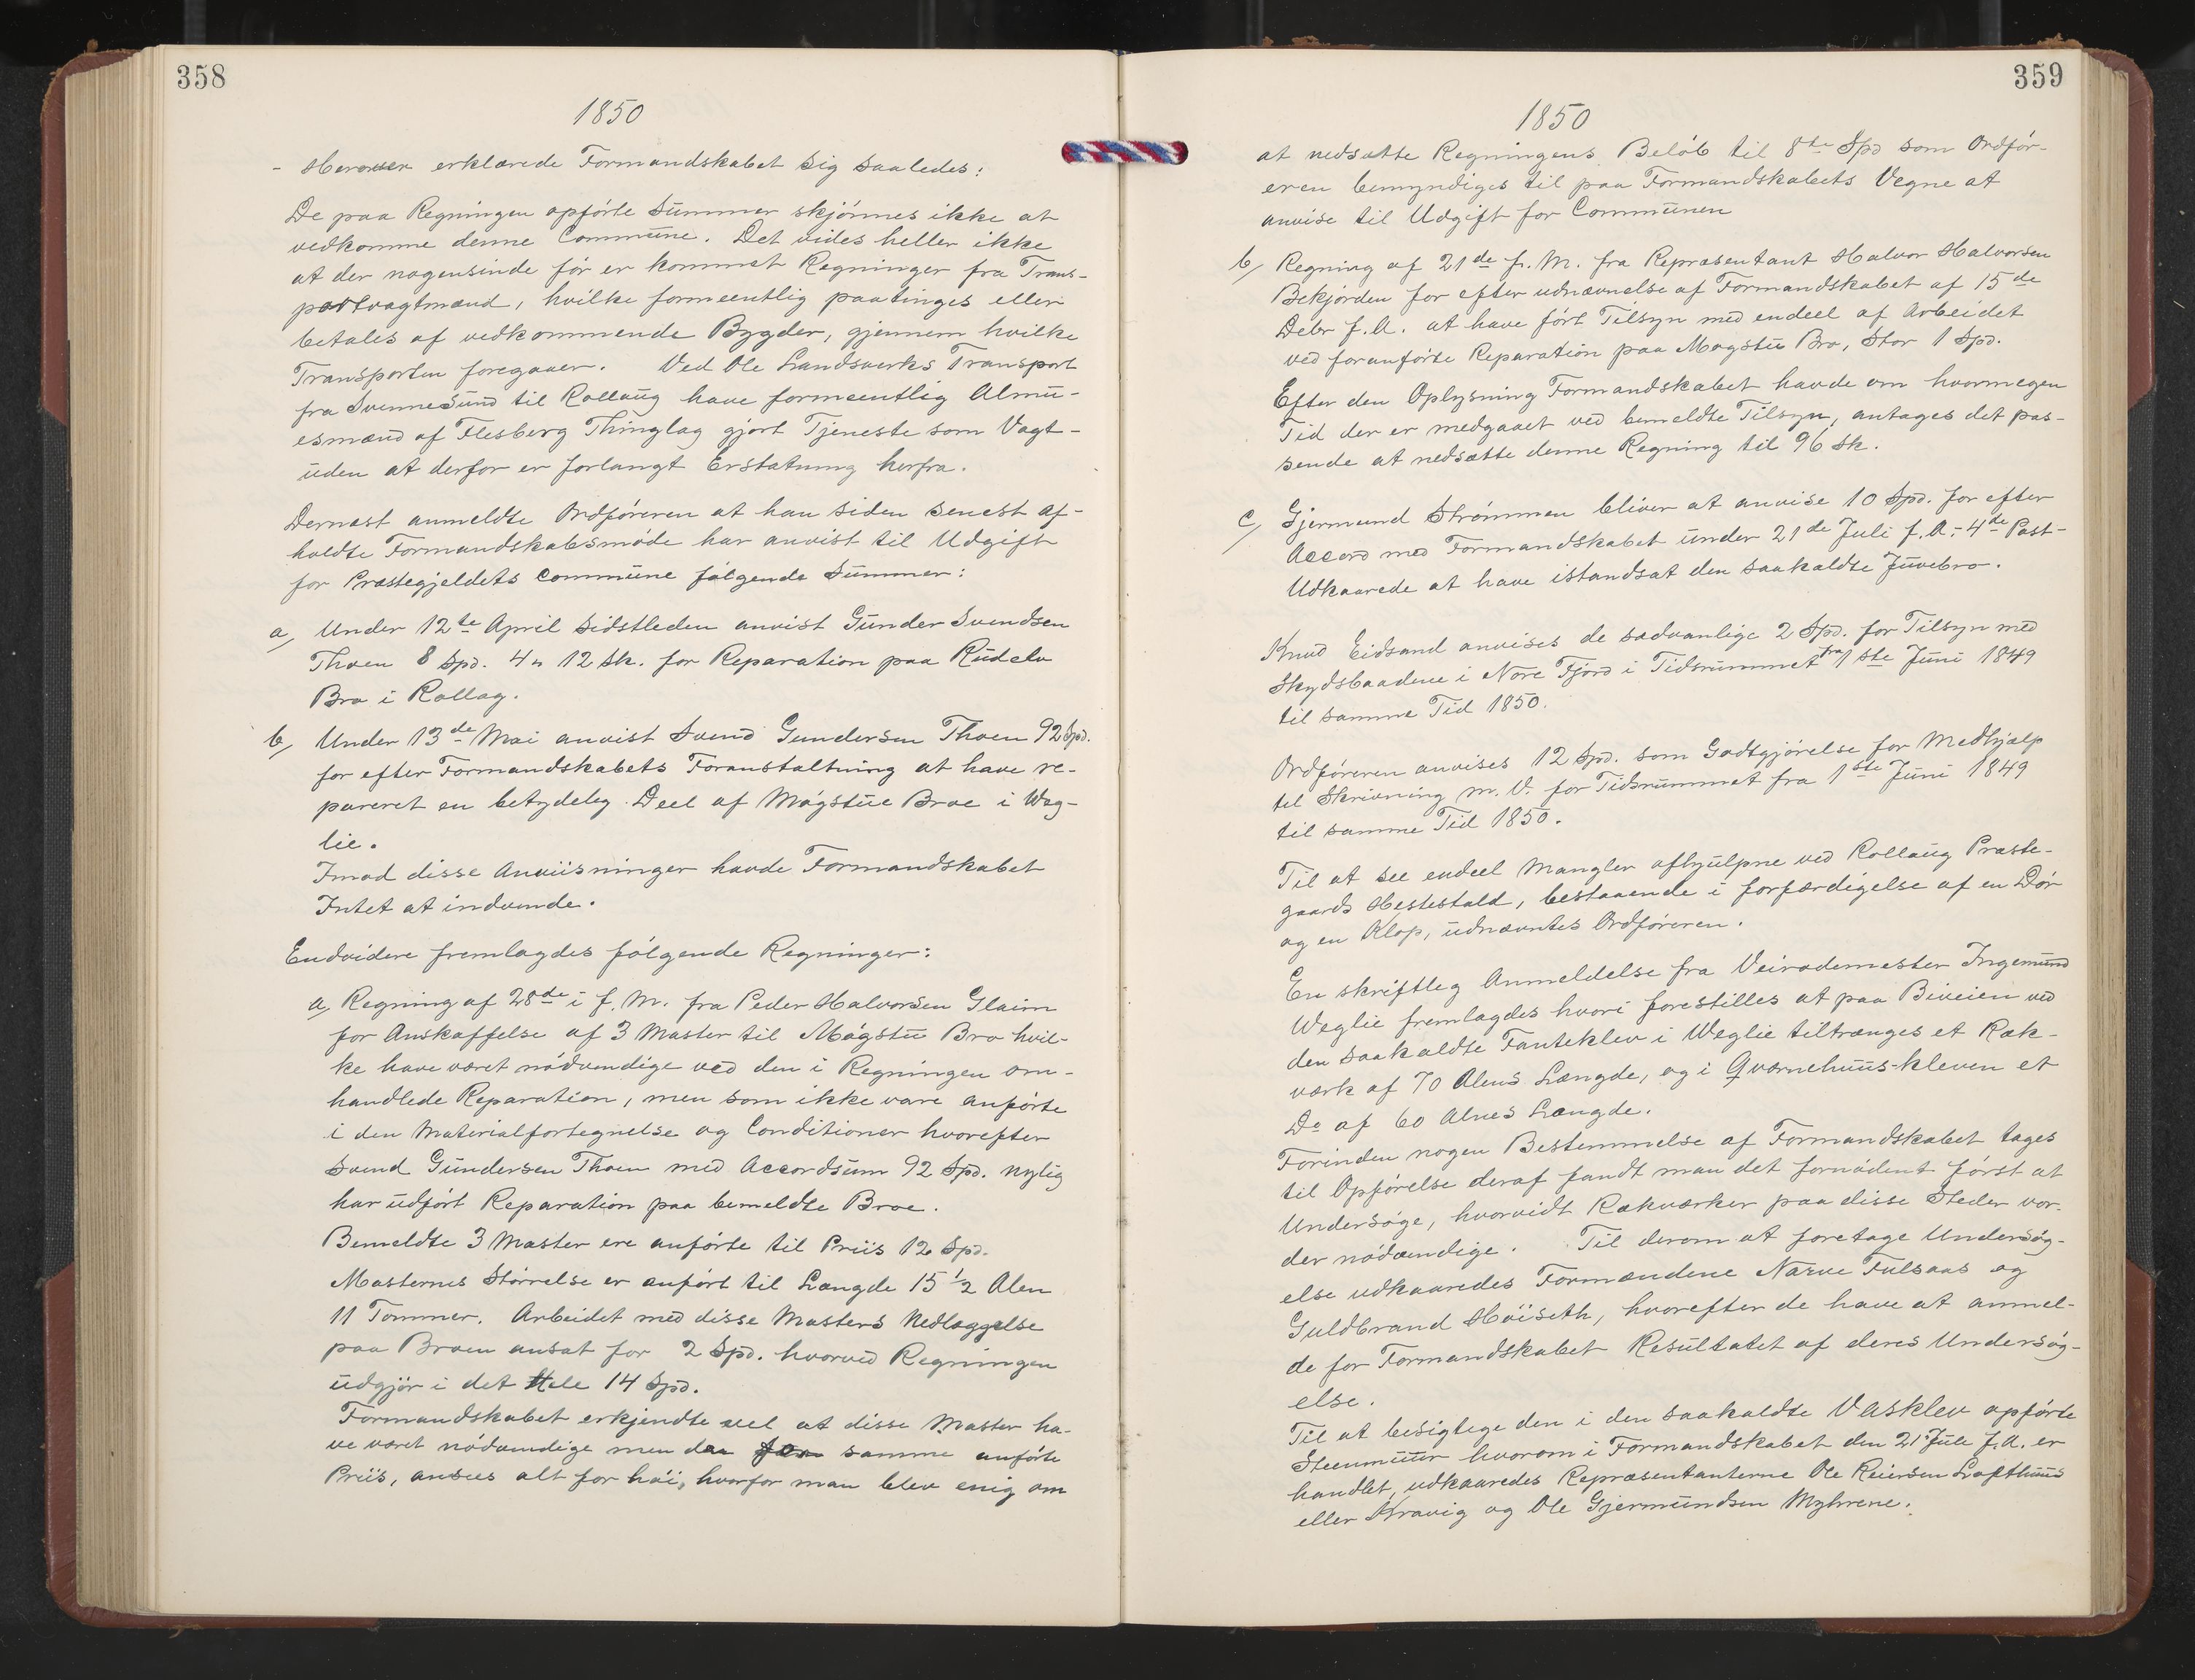 358
1850
- Herover erklærede Formandskabet sig saaledes:
De paa Regningen opførte Summer skjønnes ikke at
vedkomme denne Commune. Det vides heller ikke
at der nogensinde før er kommet Regninger fra Trans-
portvagtmænd, hvilke formeentlig paatinges eller
betales af vedkommende Bygder, gjennem hvilke
Transporten foregaaer. Ved Ole Landsverks Transport
fra Svennesund til Rollaug have formeentlig Almu-
esmænd af Flesberg Thinglag gjort Tjeneste som Vagt-
uden at derfor er forlangt Erstatning herfra.
Dernæst anmeldte Ordføreren at han siden senest af-
holdte Formandskabsmøde har anvist til Udgift
for Præstegjeldets Commune følgende Summer:
a, Under 12te April sidstleden anvist Gunder Svendsen
Thoen 8 Spd. 4 " 12 sk. for Reparation paa Rudelv
Bro i Rollag.
b, Under 13de Mai anvist Svend Gundersen Thoen 92 Spd.
for efter Formandskabets Foranstaltning at have re-
pareret en betydeleg Deel af Møgstue Broe i Weg-
lie.
Imod disse Anviisninger havde Formandskabet
Intet at indvende.
Endvidere fremlagdes følgende Regninger:
a, Regning af 28de i f. M. fra Peder Halvorsen Glaim
for Anskaffelse af 3 Master til Møgstu Bro hvil-
ke have været nødvendige ved den i Regningen om-
handlede Reparation, men som ikke vare anførte
i den Materialfortegnelse og Conditioner hvorefter
Svend Gundersen Thoen med Accordsum 92 Spd. nylig
har udført Reparation paa bemeldte Broe.
Bemeldte 3 Master ere anførte til Priis 12 Spd.
Masternes Størrelse er anført til Længde 15 1/2 Alen
11 Tommer. Arbeidet med disse Masters Nedlæggelse
paa Broen ansat for 2 Spd. hvorved Regningen
udgjør i det Hele 14 Spd.
Formandskabet erkjendte vel at disse Master ha-
ve været nødvendige men den for samme anførte
Priis, ansees alt for høi, hvorfor man blev enig om
359
1850
at nedsætte Regningens Beløb til 8te Spd som Ordfør-
eren bemyndiges til paa Formandskabets Vegne at
anvise til Udgift for Communen
b, Regning af 21de f. M. fra Repræsentant Halvor Halvorsen
Bekjorden for efter udnævnelse af Formandskabet af 15de
Debr f.A. at have ført Tilsyn med endeel af Arbeidet
ved foranførte Reparation paa Mogstu Bro, Stor 1 Spd.
Efter den Oplysning Formandskabet havde om hvormegen
Tid der er medgaaet ved bemeldte Tilsyn, antages det pas-
sende at nedsætte denne Regning til 96 sk.
c, Gjermund Strømmen bliver at anvise 10 Spd. for efter
Accord med Formandskabet under 21de Juli f.A. - 4de Post -
Udkaarede at have istandsat den saakaldte Juvebro.
Knud Eidsand anvises de sædvanlige 2 Spd. for Tilsyn med
Skydsbaadene i Nore Fjord i Tidsrummet fra 1ste Juni 1849
til samme Tid 1850.
Ordføreren anvises 12 Spd. som Godtgjørelse for Medhjælp
til Skrivning m.V. for Tidsrummet fra 1ste Juni 1849
til samme Tid 1850.
Til at see endeel Mangler afhjulpne ved Rollaug Præste-
gaards Hestestald, bestaaende i forfærdigelse af en Dør
og en Klop, udnævntes Ordføreren.
En skriftleg Anmeldelse fra Veirodemester Ingemund
Weglie fremlagdes hvori forestilles at paa Biveien ved
den saakaldte Fanteklev i Weglie tiltrænges et Ræk-
værk af 70 Alens Længde, og i Qværnehuus-kleven et
Do af 60 Alnes Længde.
Forinden nogen Bestemmelse af Formandskabet tages
til Opførelse deraf fandt man det fornødent først at
Undersøge, hvorvidt Rækværker paa disse Steder vor-
der nødvendige. Til derom at foretage Undersøg-
else udkaaredes Formændene Narve Fulsaas og
Guldbrand Høiseth, hvorefter de have at anmel-
de for Formandskabet Resultatet af deres Undersøg-
else.
Til at besigtege den i den saakaldte Vasklev opførte
Steenmuur hvorom i Formandskabet den 21 Juli f.A. er
handlet, udkaaredes Repræsentanterne Ole Reiersen Lofthuus
eller Kravig og Ole Gjermundsen Myhrene.